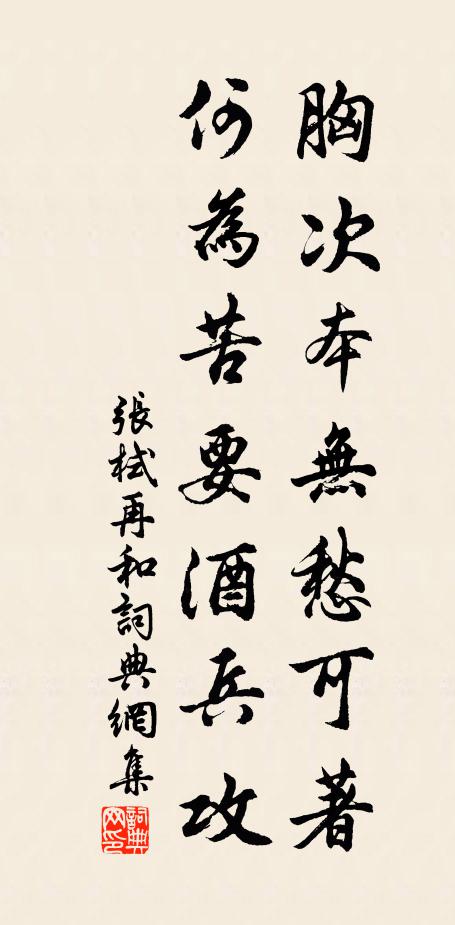 胸次本無愁可著
何為苦要酒兵攻
張栻再和詞典網集
詞典网印